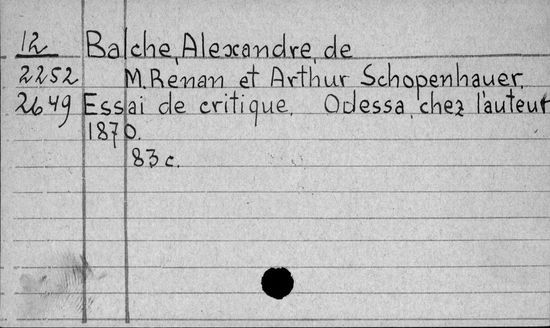 12 Balche, Alexandre, de
2252 M. Renan et Arthur Schopenhauer.
2649 Essai de critique. Odessa, chez l'auteur
1870.
83 c.